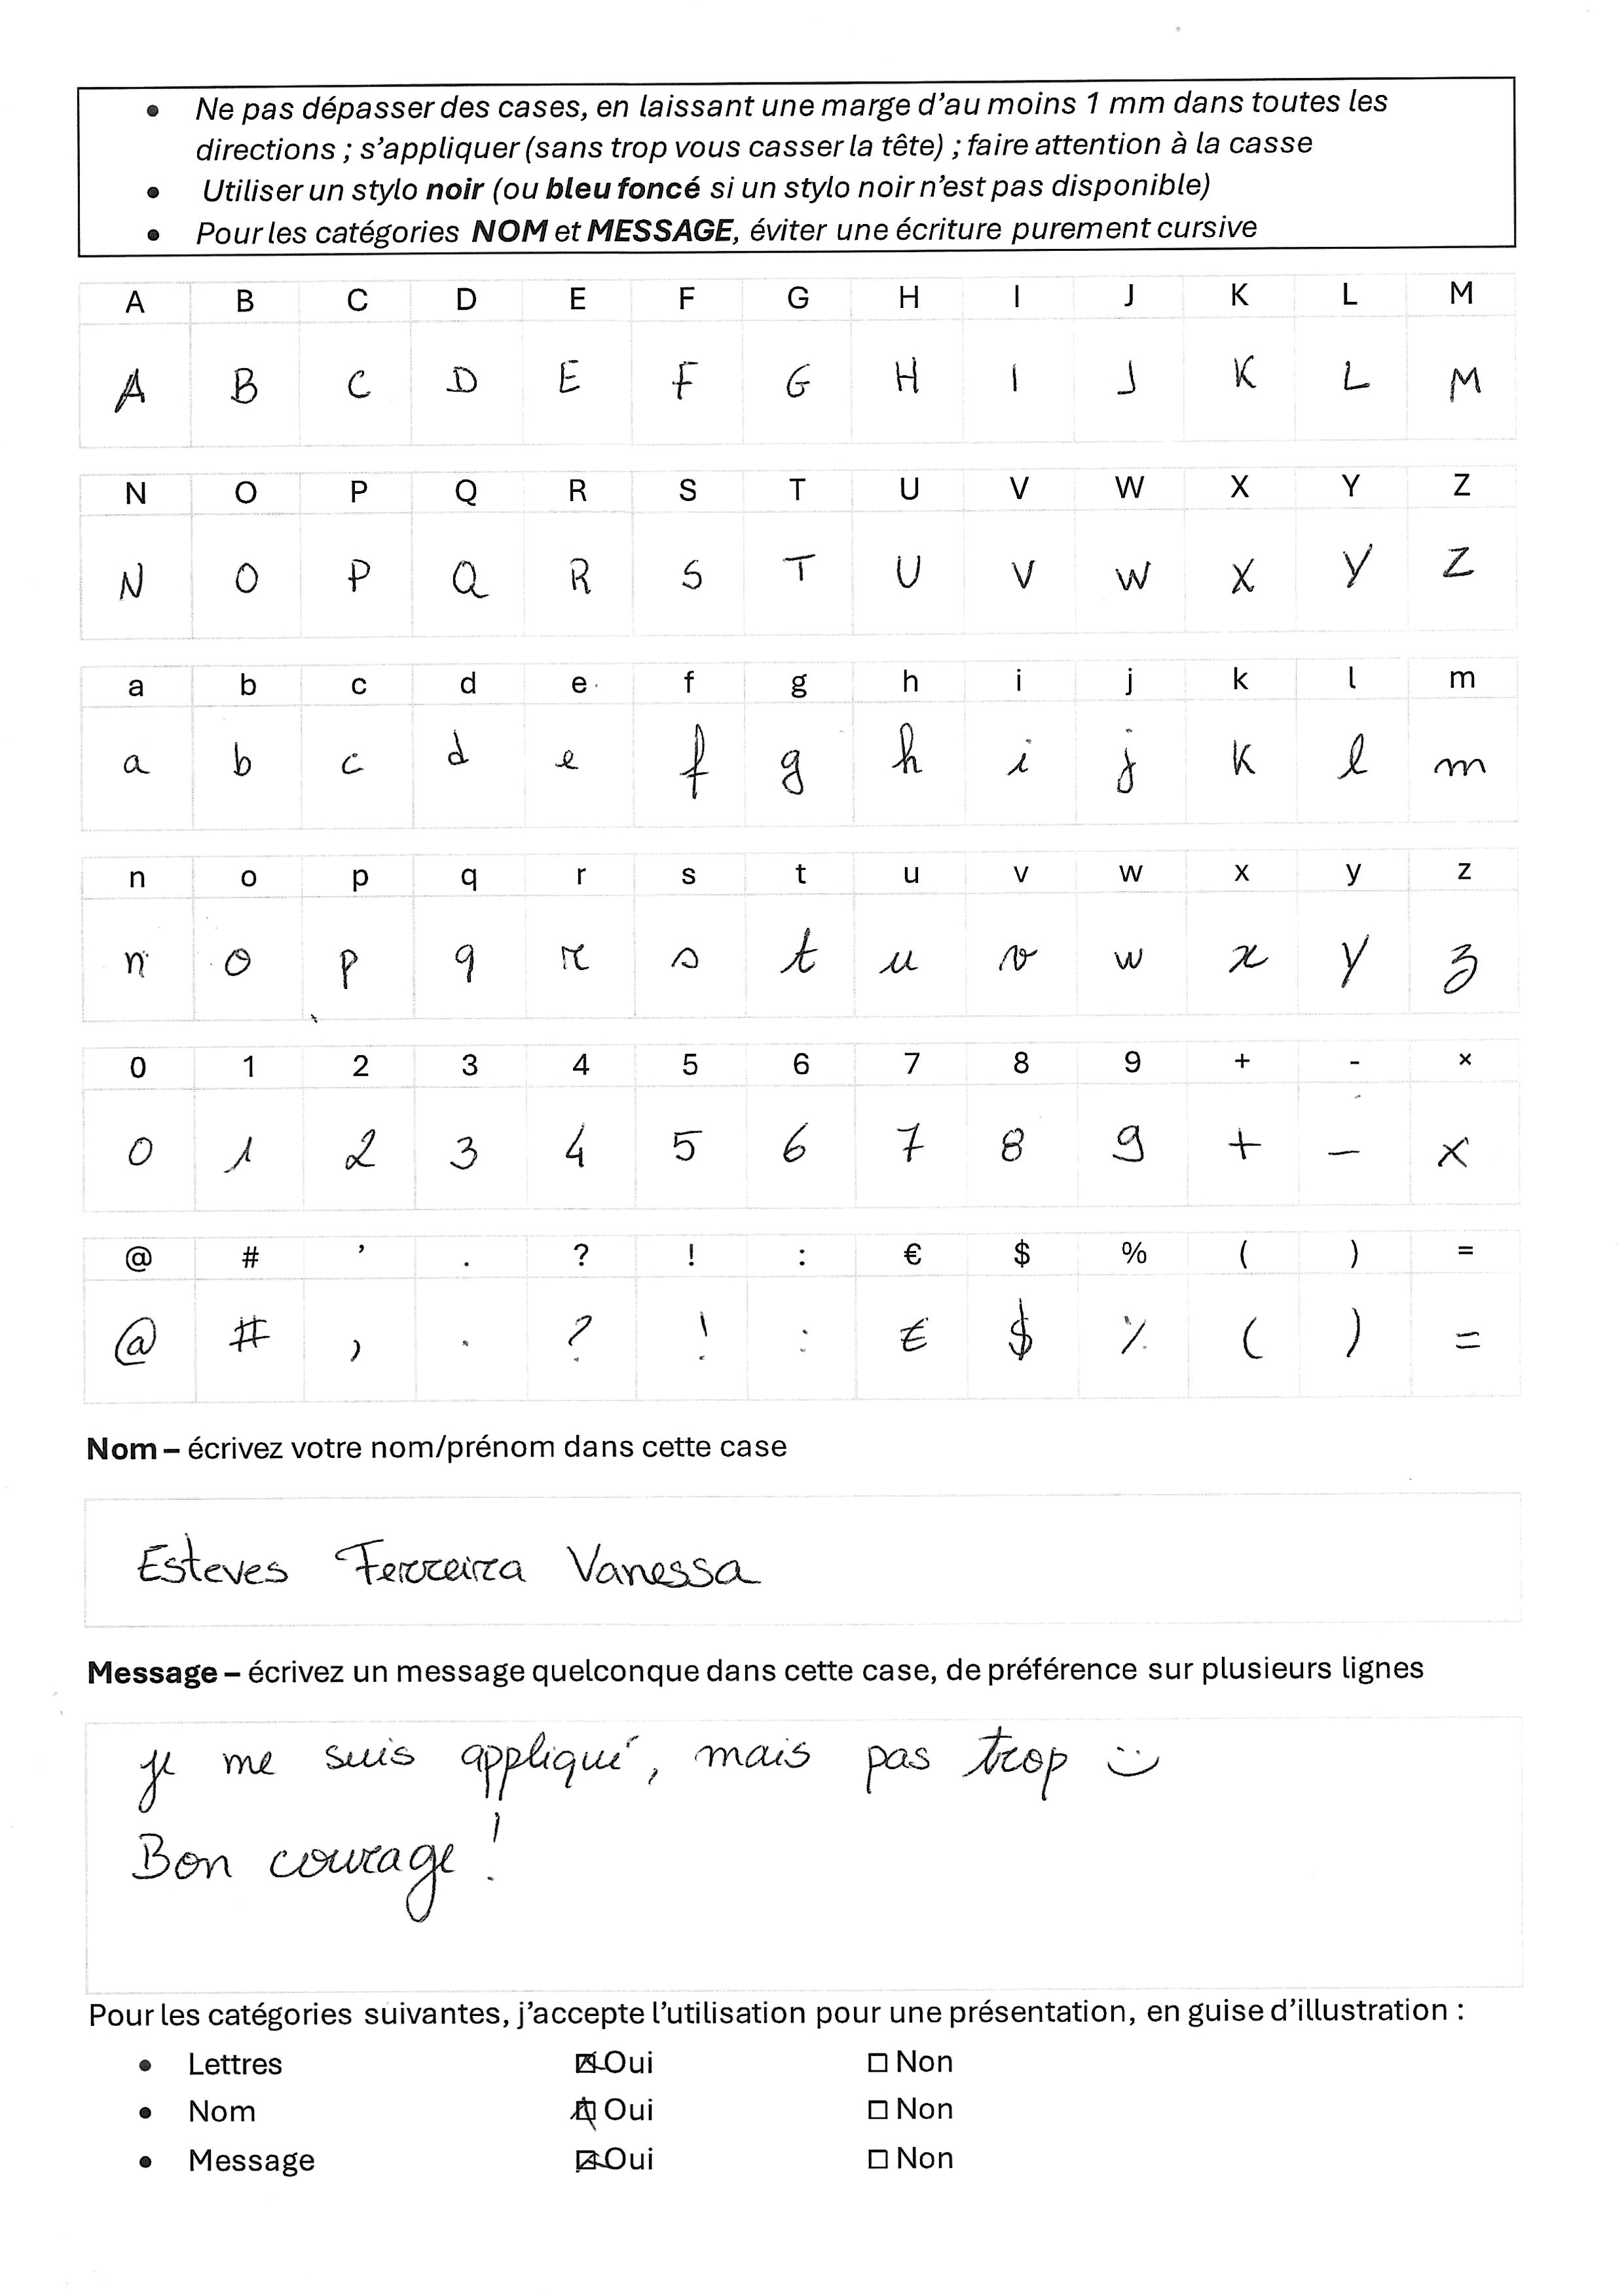 • Ne pas dépasser des cases, en laissant une marge d'au moins 1 mm dans toutes les
directions ; s'appliquer (sans trop vous casser la tête) ; faire attention à la casse
• Utiliser un stylo noir (ou bleu foncé si un stylo noir n'est pas disponible)
• Pour les catégories NOM et MESSAGE, éviter une écriture purement cursive
A B C D E F G H I J K L M
A B C D E F G H I J K L M
N O P Q R S T U V W X Y Z
N O P Q R S T U V W X Y Z
a b c d e f g h i j k l m
a b c d e f g h i j k l m
n o p q r s t u v w x y z
n o p q r s t u v w x y z
0 1 2 3 4 5 6 7 8 9 + - ×
0 1 2 3 4 5 6 7 8 9 + - ×
@ # ’ . ? ! : € $ % ( ) =
@ # , . ? ! : € $ % ( ) =
Nom – écrivez votre nom/prénom dans cette case
Esteves Ferreira Vanessa
Message – écrivez un message quelconque dans cette case, de préférence sur plusieurs lignes
je me suis appliqué, mais pas trop :)
Bon courage !
Pour les catégories suivantes, j'accepte l'utilisation pour une présentation, en guise d'illustration :
• Lettres ☒ Oui ☐ Non
• Nom ☒ Oui ☐ Non
• Message ☒ Oui ☐ Non